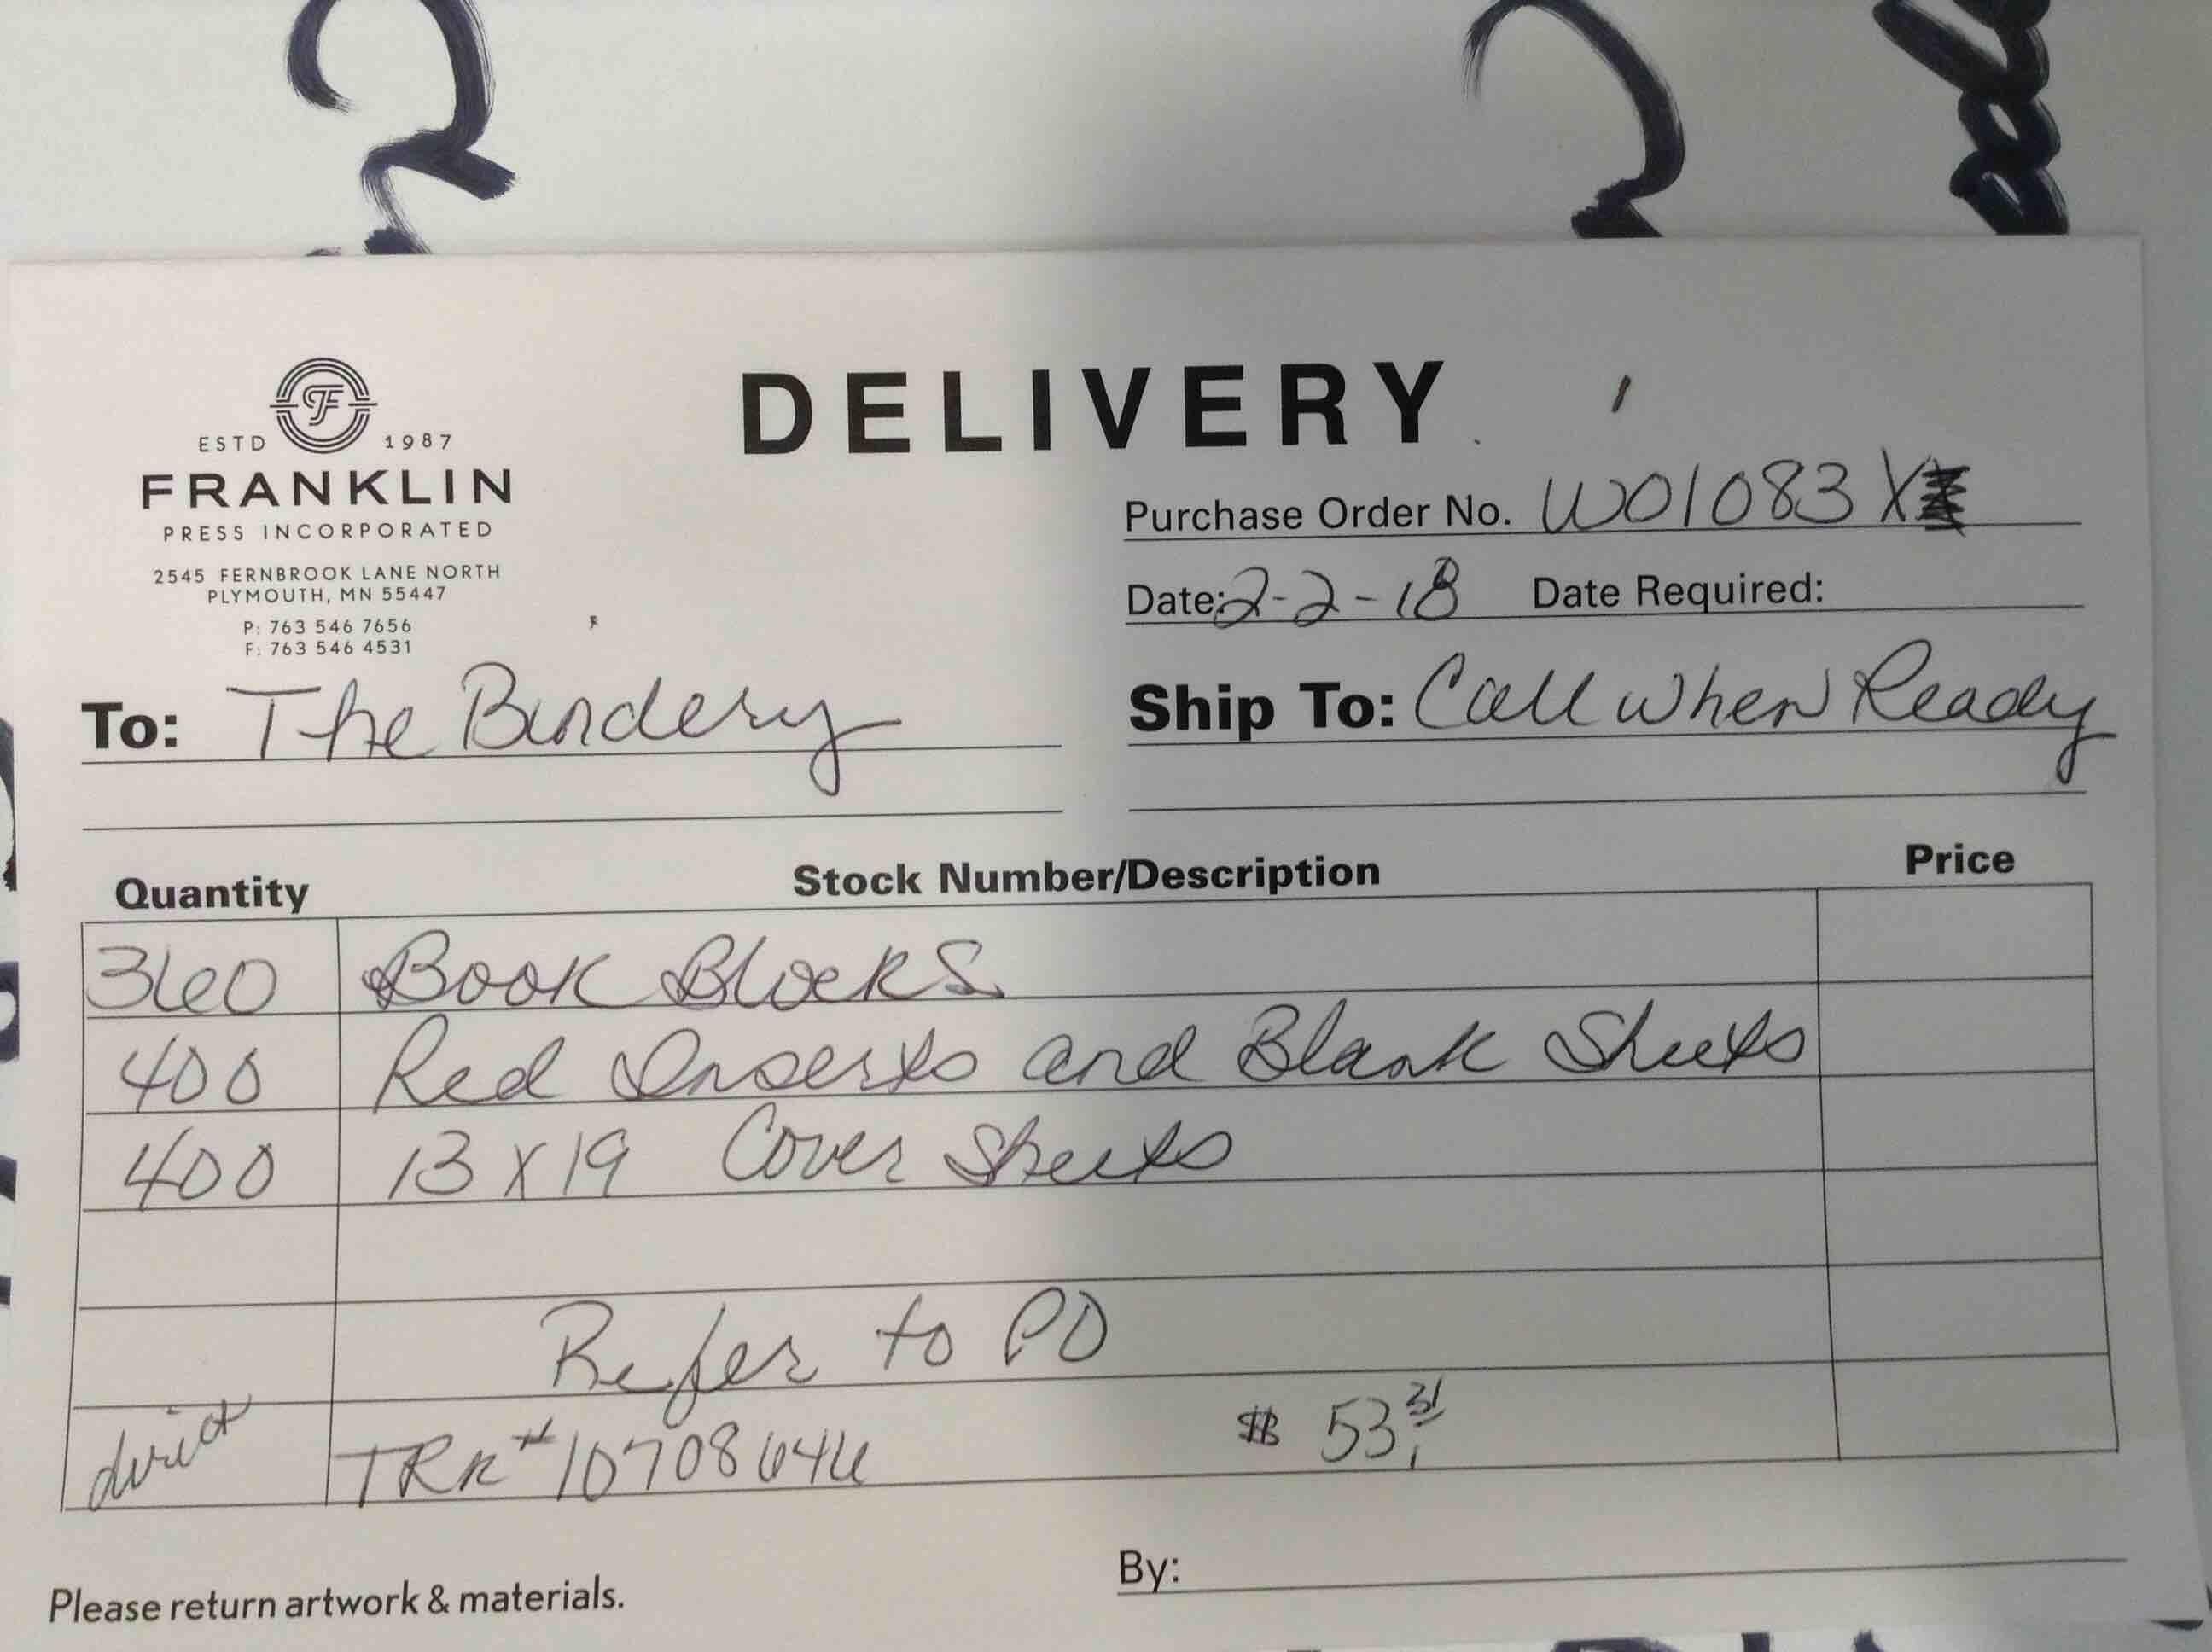 DELIVERY
ESTD 1987
FRANKLIN
PRESS INCORPORATED
2545 FERNBROOK LANE NORTH
PLYMOUTH, MN 55447
P: 763 546 7656
F: 763 546 4531
Purchase Order No. W01083X
Date: 2-2-18 Date Required:
To: The Bindery
Ship To: Call when Ready
Quantity Stock Number/Description Price
360 Book Blocks
400 Red Inserts and Blank Sheets
400 13 X 19 Cover Sheets
Refer to PO
direct TRK #10708646 $ 53.31
Please return artwork & materials.
By: